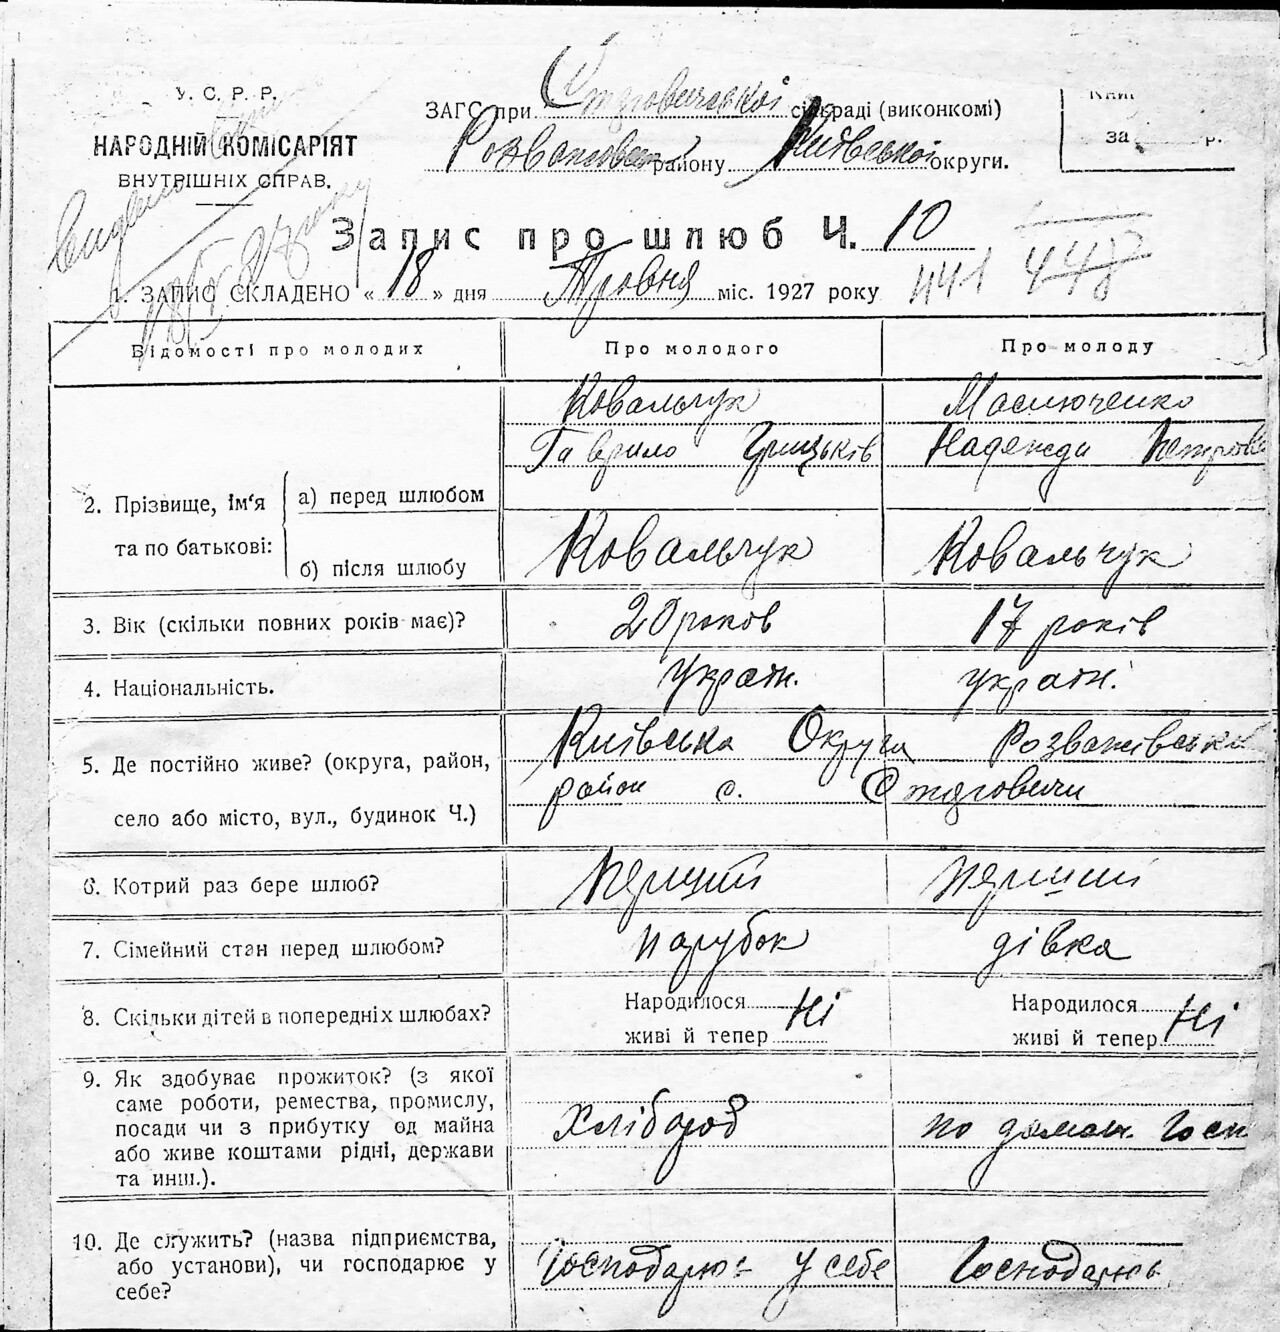 У. С. Р. Р.
НАРОДНІЙ КОМІСАРІЯТ
ВНУТРІШНІХ СПРАВ.
ЗАГС при Стдговичської сільраді (виконкомі)
Розважівськ району Київської округи.
за р.
Запис про шлюб Ч. 10
441 448
1. ЗАПИС СКЛАДЕНО « 18 » дня Травня міс. 1927 року
Відомості про молодих Про молодого Про молоду
Ковальчук Масюченко
Гаврило Грицьків Надежда Петрова
2. Прізвище, ім'я та по батькові: а) перед шлюбом
б) після шлюбу Ковальчук Ковальчук
3. Вік (скільки повних років має)? 20 років 17 років
4. Національність. україн. україн.
5. Де постійно живе? (округа, район, Київська Округа Розважівськи
село або місто, вул., будинок Ч.) район с. Стдговичи
6. Котрий раз бере шлюб? Перший перший
7. Сімейний стан перед шлюбом? парубок дівка
8. Скільки дітей в попередніх шлюбах? Народилося Народилося
живі й тепер Ні живі й тепер Ні
9. Як здобуває прожиток? (з якої
саме роботи, ремества, промислу,
посади чи з прибутку од майна Хлібороб по домаш. Госп
або живе коштами рідні, держави
та инш.).
10. Де служить? (назва підприємства,
або установи), чи господарює у Господарює у себе Господарює
себе?